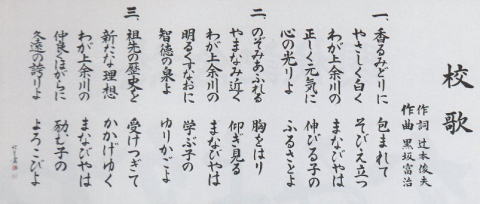 校歌
作詞 辻本俊夫
作曲 黒坂富治
一、香るみどりに 包まれて
やさしく白く そびえ立つ
わが上余川の まなびやは
正しく元気に 伸びる子の
心の光りよ ふるさとよ
二、のぞみあふれる 胸をはり
やまなみ近く 仰ぎ見る
わが上余川の まなびやは
明るくすなおに 学ぶ子の
智徳の泉よ ゆりかごよ
三、祖先の歴史を 受けつぎて
新たな理想 かかげゆく
わが上余川の まなびやは
仲良くほがらに 励む子の
久遠の誇りよ よろこびよ